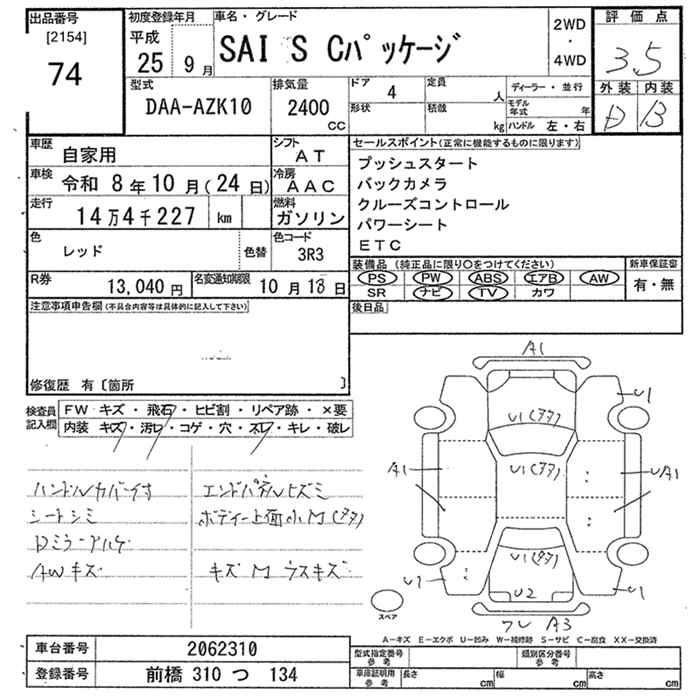 出品番号
[2154]
74
初度登録年月
平成
25 9月
車名・グレード
SAI S Cパッケージ
2WD
・
4WD
評価点
3.5
外装 内装
D B
型式
DAA-AZK10
排気量
2400
CC
ドア 4
定員 人
形状
積載 kg
ディーラー・並行
モデル年式 年
ハンドル 左・右
車歴
自家用
シフト
AT
車検 令和 8年10月(24日)
冷房
AAC
走行
14万4千227 km
燃料
ガソリン
色
レッド
色替
色コード
3R3
R券
13,040円
名変通知期限
10月18日
セールスポイント(正常に機能するものに限ります)
プッシュスタート
バックカメラ
クルーズコントロール
パワーシート
ETC
装備品 (純正品に限り〇をつけてください)
新車保証書
PS PW ABS エアB AW
有・無
SR ナビ TV カワ
後日品
注意事項申告欄(不具合内容等は具体的に記入して下さい)
修復歴 有〔箇所 〕
検査員
記入欄
FW キズ・飛石・ヒビ割・リペア跡・×要
内装 キズ・汚レ・コゲ・穴・スレ・キレ・破レ
ハンドルカバー付
シートシミ
Dミラーアルゲ
AWキズ
エンドパネルヒズミ
ボディー上面小M(タタ)
キズ M ウスキズ
A1
U1
U1(タタ)
A1
U1(タタ)
UA1
U1(タタ)
U2
U1
スペア
フレ A3
A-キズ E-エクボ U-凹み W-補修跡 S-サビ C-腐食 XX-交換済
車台番号 2062310
登録番号 前橋 310 つ 134
型式指定番号
参考
類別区分番号
参考
車庫証明用
参考
長さ cm 幅 cm 高さ cm